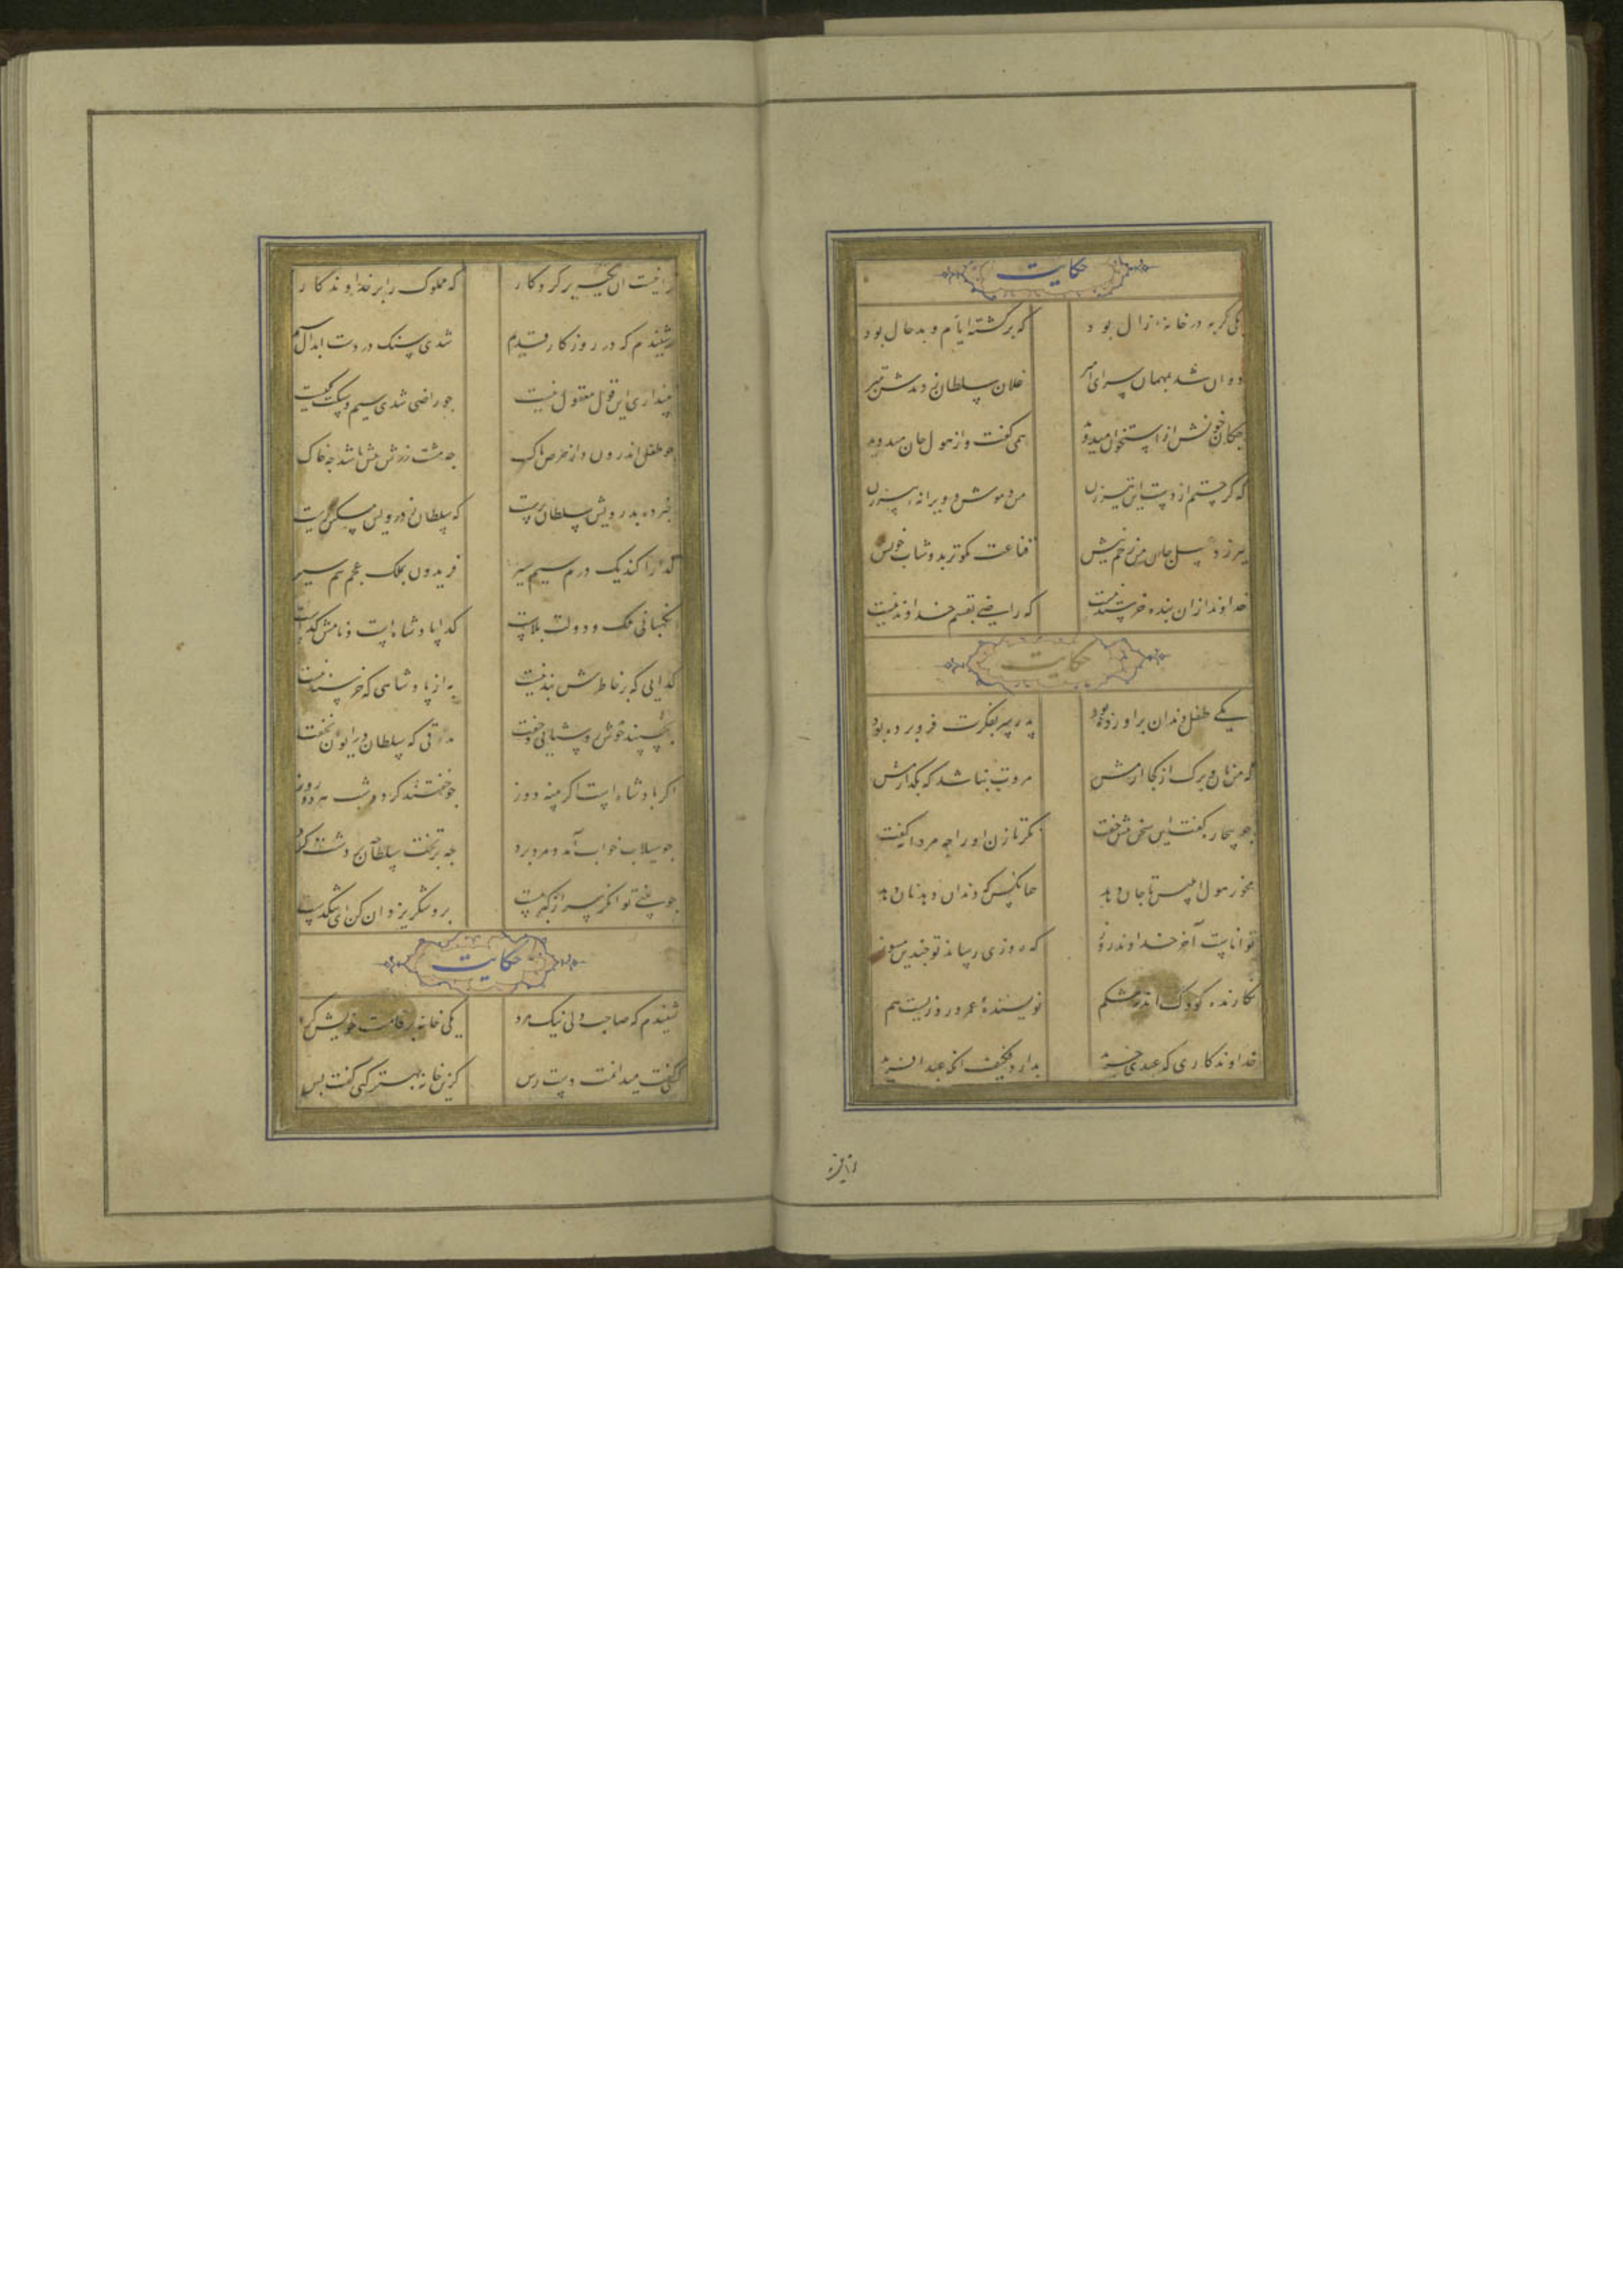 حکایت
یکی گربه در خانه زال بود که برگشته ایام و بدحال بود
دوان شد بمهمان سرای امیر غلامان سلطان زدندش بتیر
چکان خونش از استخوان میدوید همی گفت و از هول جان میدوید
که گر جستم از دست این تیرزن من و موش و ویرانه پیرزن
نیرزد عسل جان من زخم نیش قناعت نکوتر بدوشاب خویش
خداوند ازان بنده خرسند نیست که راضی بقسم خداوند نیست
حکایت
یکی طفل دندان براورده بود پدر سر بفکرت فرو برده بود
که من نان و برگ از کجا ارمش مروت نباشد که بگذارمش
چو بیچاره گفت این سخن پیش جفت نگر تا زن او را چه مردانه گفت
مخور هول ابلیس تا جان دهد همانکس که دندان دهد نان دهد
تواناست آخر خداوند روز که روزی رساند تو چندین مسوز
نگارنده کودک اندر شکم نویسنده عمر و روزیست هم
خداوندکاری که عبدی خرید بدارد فکیف انک عبد افرید
ترا نیست
ترا نیست ان تکیه بر کردکار که مملوک را بر خداوندکار
شنیدم که در روزکار قدیم شدی سنک در دست ابدال سیم
نپنداری این قول معقول نیست چو راضی شدی سیم و سنکت یکیست
چو طفل اندرون دارد از حرص پاک چه مشت زرش پیش باشد چه خاک
خبر ده بدرویش سلطان پرست که سلطان ز درویش مسکین ترست
کدا را کند یک درم سیم سیر فریدون بملک عجم نیم سیر
نکهبانی ملک و دولت بلاست کدا پادشاهست و نامش کداست
کدایی که بر خاطرش بند نیست به از پادشاهی که خرسند نیست
بخسپند خوش روستایی و جفت بذوقی که سلطان در ایوان نخفت
اکر پادشاهست اکر پینه دوز چو خفتند کردد شب هر دو روز
چو سیلاب خواب آمد و مرد برد چه بر تخت سلطان چه بر دشت کرد
چو بینی توانکر سر از کبر مست برو شکر یزدان کن ای تنکدست
حکایت
شنیدم که صاحب دلی نیک مرد یکی خانه بر قامت خویش کرد
کسی گفت میدانمت دست رس کزین خانه بهتر کنی گفت بس